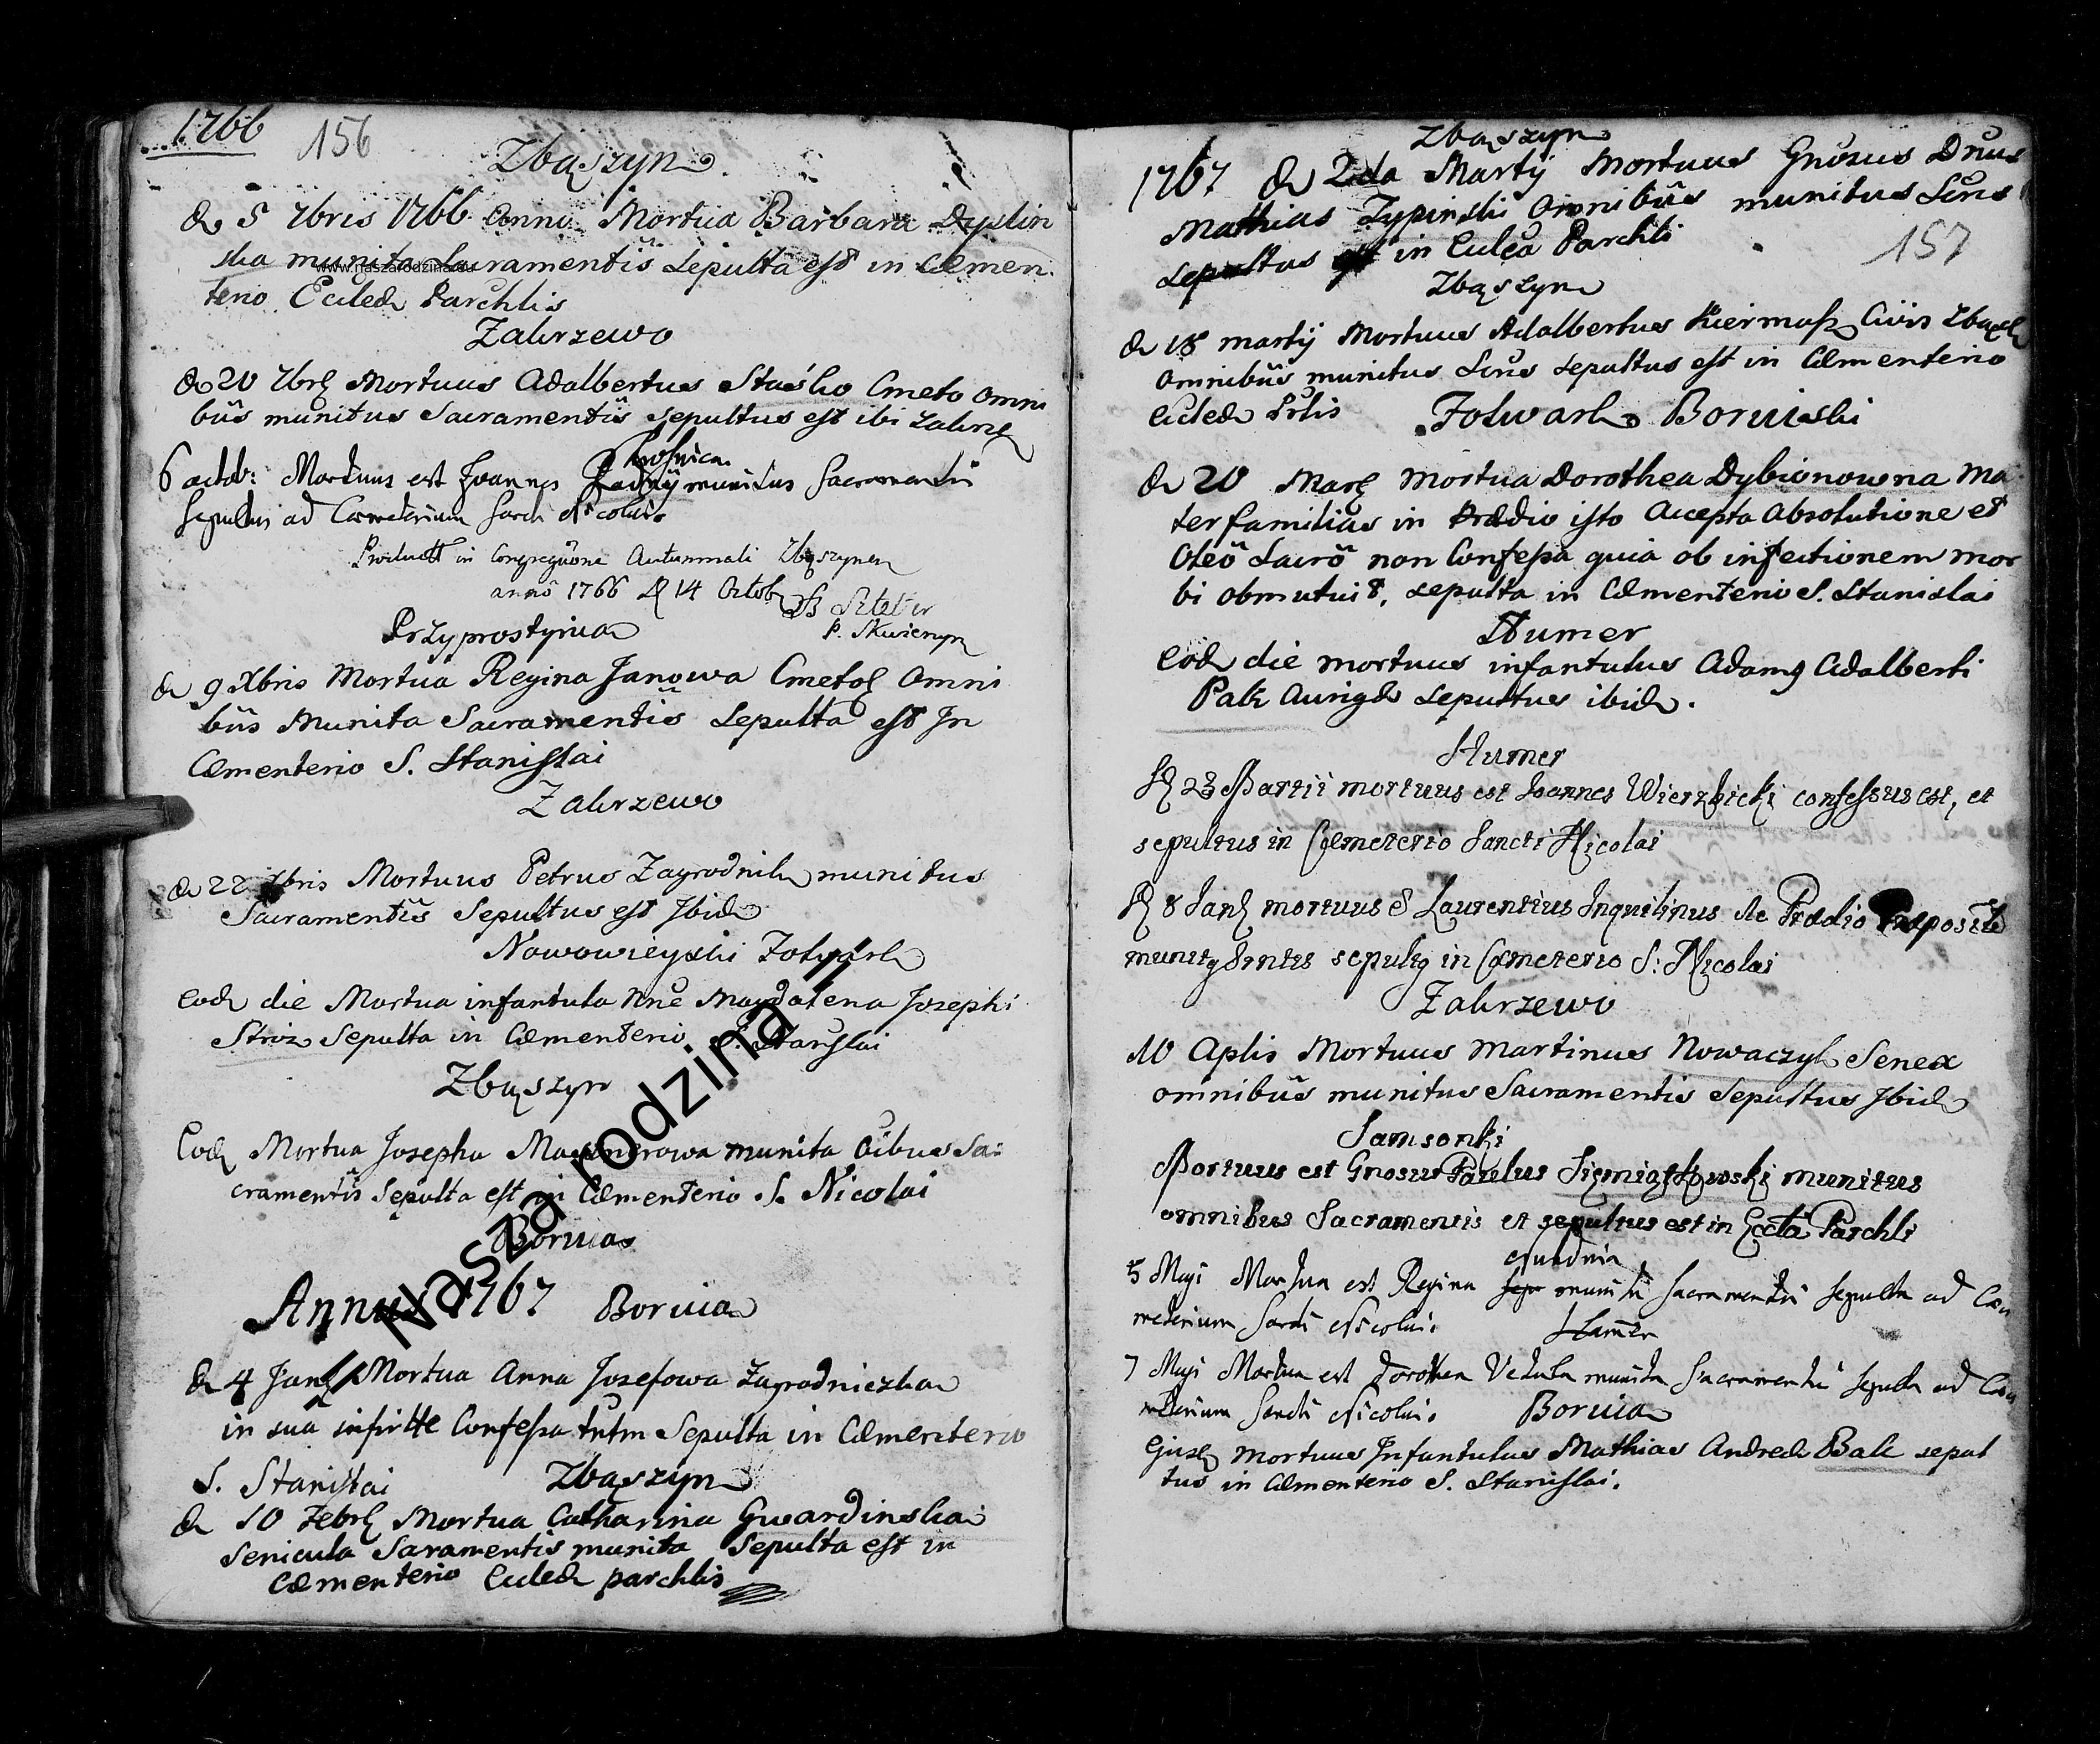 1766
156
Zbąszyn
d 5 7bris 1766 Anni Mortua Barbara Dyslin
ska munita Sacramentis Sepulta est in Cæmen
terio Eccleæ Parchlis
www.naszarodzina.eu
Zakrzewo
20 7br Mortuus Adalbertus Staśko Cmeto omni
bus munitus Sacramentis sepultus est ibi Zakrze
6 octob: Mortuus est Joannes munitus Sacramentis
sepultus ad Cæmeterium Sancti Nicolai.
in Congregõne Autumnali Zbąszynen
anno 1766 d 14 Octob
P. Skwierzyn
Przyprostynia
d 9 Xbris Mortua Regina Janowa Cmeto Omni
bus Munita Sacramentis Sepulta est In
Cæmenterio S. Stanislai
Zakrzewo
d 22 Xbris Mortuus Petrus Zagrodnik munitus
Sacramentis Sepultus est Ibid
Nowowieyski Folwark
Eod die Mortua infantula Nne Magdalena Josephi
Stroz Sepulta in Cæmenterio S. Stanislai
Zbąszyn
Eod Mortua Josepha munita Oibus Sa
cramentis Sepulta est in Cæmenterio S. Nicolai
Boruia
Nasza rodzina
Annus 1767 Boruia
d 4 Jan Mortua Anna Josefowa Zagrodniczka
in sua Confessa tntm Sepulta in Cæmenterio
S. Stanislai Zbąszyn
d 10 Febr Mortua Catharina Gwardinska
Senicula Saramentis munita Sepulta est in
Cæmenterio Eccleæ parchlis
Zbąszyn
1767 d 2da Martij Mortuus Gnosus Dnus
Mathias Typinski Omnibus munitus Scris
sepultus est in Eccleа Parchli
157
Zbąszyn
d 18 martij Mortuus Adalbertus Kiermasz Civis Zbąsz
Omnibus munitus Scris sepultus est in Cæmenterio
Eccleæ Prlis Folwark Boruiski
d 20 Mar Mortua Dorothea Dybionowna Ma
terfamilias in Prædio isto Accepta Absolutione et
Oleo Sacro non Confessa quia ob infectionem mor
bi obmutuit, sepulta in Cæmenterio S. Stanislai
Humer
Eod die mortuus infantulus Adam9 Adalberti
Palk Aurigæ Sepultus ibid.
Humer
d 23 Martii mortuus est Joannes Wierzbicki confessus est, et
sepultus in Cæmeterio Sancti Nicolai
d 8 mortuus e Laurentius Inquilinus de Prædio Præposit
munit9 sepult9 in Cæmeterio S: Nicolai
Zakrzewo
10 Aplis Mortuus Martinus Nowaczyk Senex
omnibus munitus Sacramentis Sepultus Ibid
Samsonki
Mortuus est Gnosus Paulus munitus
omnibus Sacramentis et sepultus est in Eccla Parchli
5 Maji Mortua est Regina munita Sacramentis sepulta ad Cæ
meterium Sancti Nicolai. Hamer
7 Maji Mortua est Dorothea Vetula munita Sacramentis sepulta ad Cæ
meterium Sancti Nicolai. Boruia
Ejusd mortuus Infantulus Mathias Andreæ Balc sepul
tus in Cæmenterio S. Stanislai.